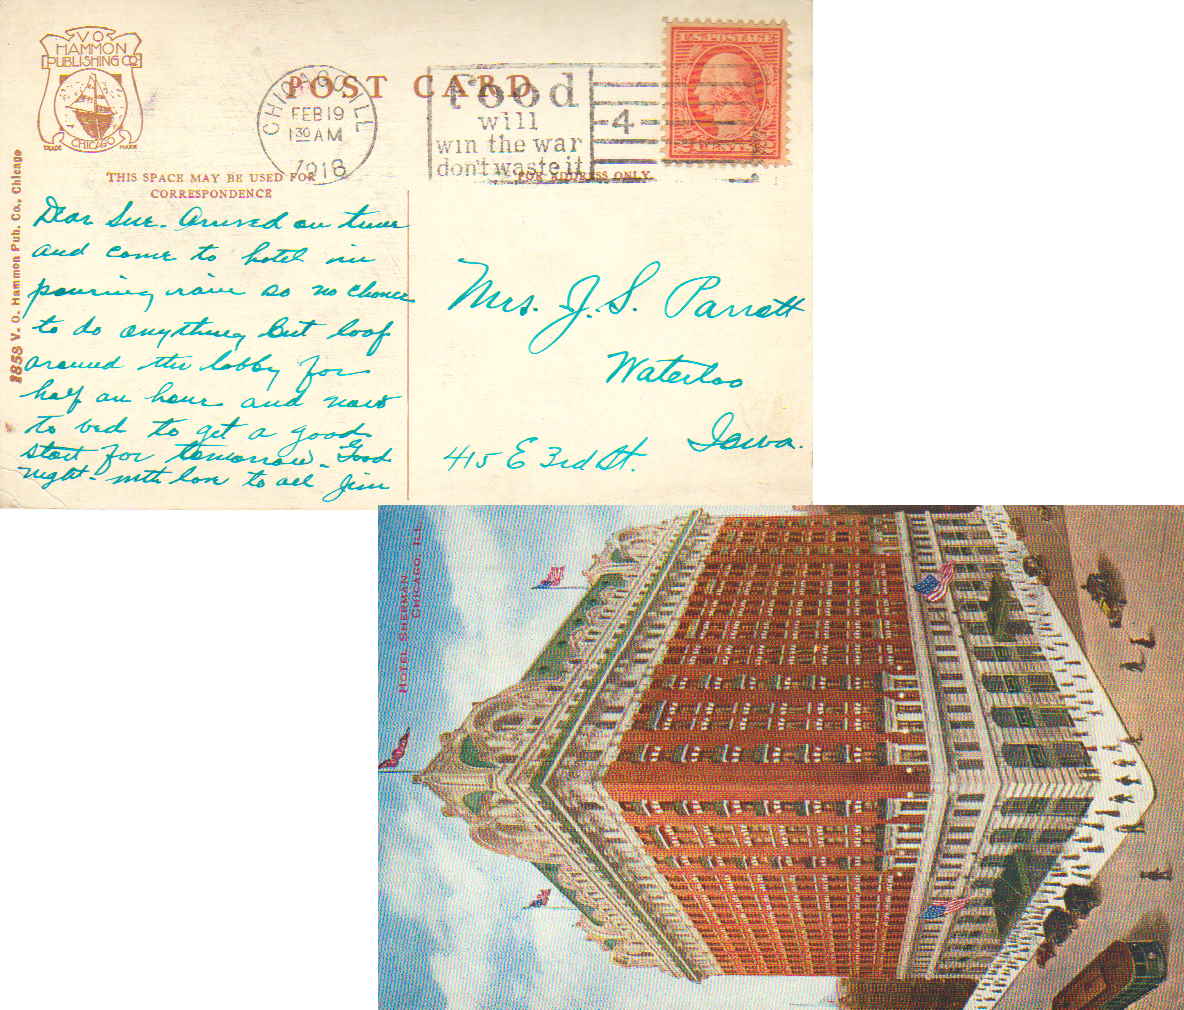 V O
HAMMON
PUBLISHING CO
CHICAGO
TRADE MARK
POST CARD
CHICAGO, ILL
FEB 19
1 30 AM
1918
Food
will
win the war
don't waste it
4
U.S. POSTAGE
THIS SPACE MAY BE USED FOR
CORRESPONDENCE
FOR ADDRESS ONLY
2858 V. O. Hammon Pub. Co., Chicago
Dear Sue. Arrived on time
and come to hotel in
pouring rain so no chance
to do anything but loaf
around the lobby for
half an hour and now
to bed to get a good
start for tomorrow. Good
night - with love to all Jim
Mrs. J. S. Parrott
Waterloo
Iowa.
415 E 3rd St.
HOTEL SHERMAN
CHICAGO, ILL.